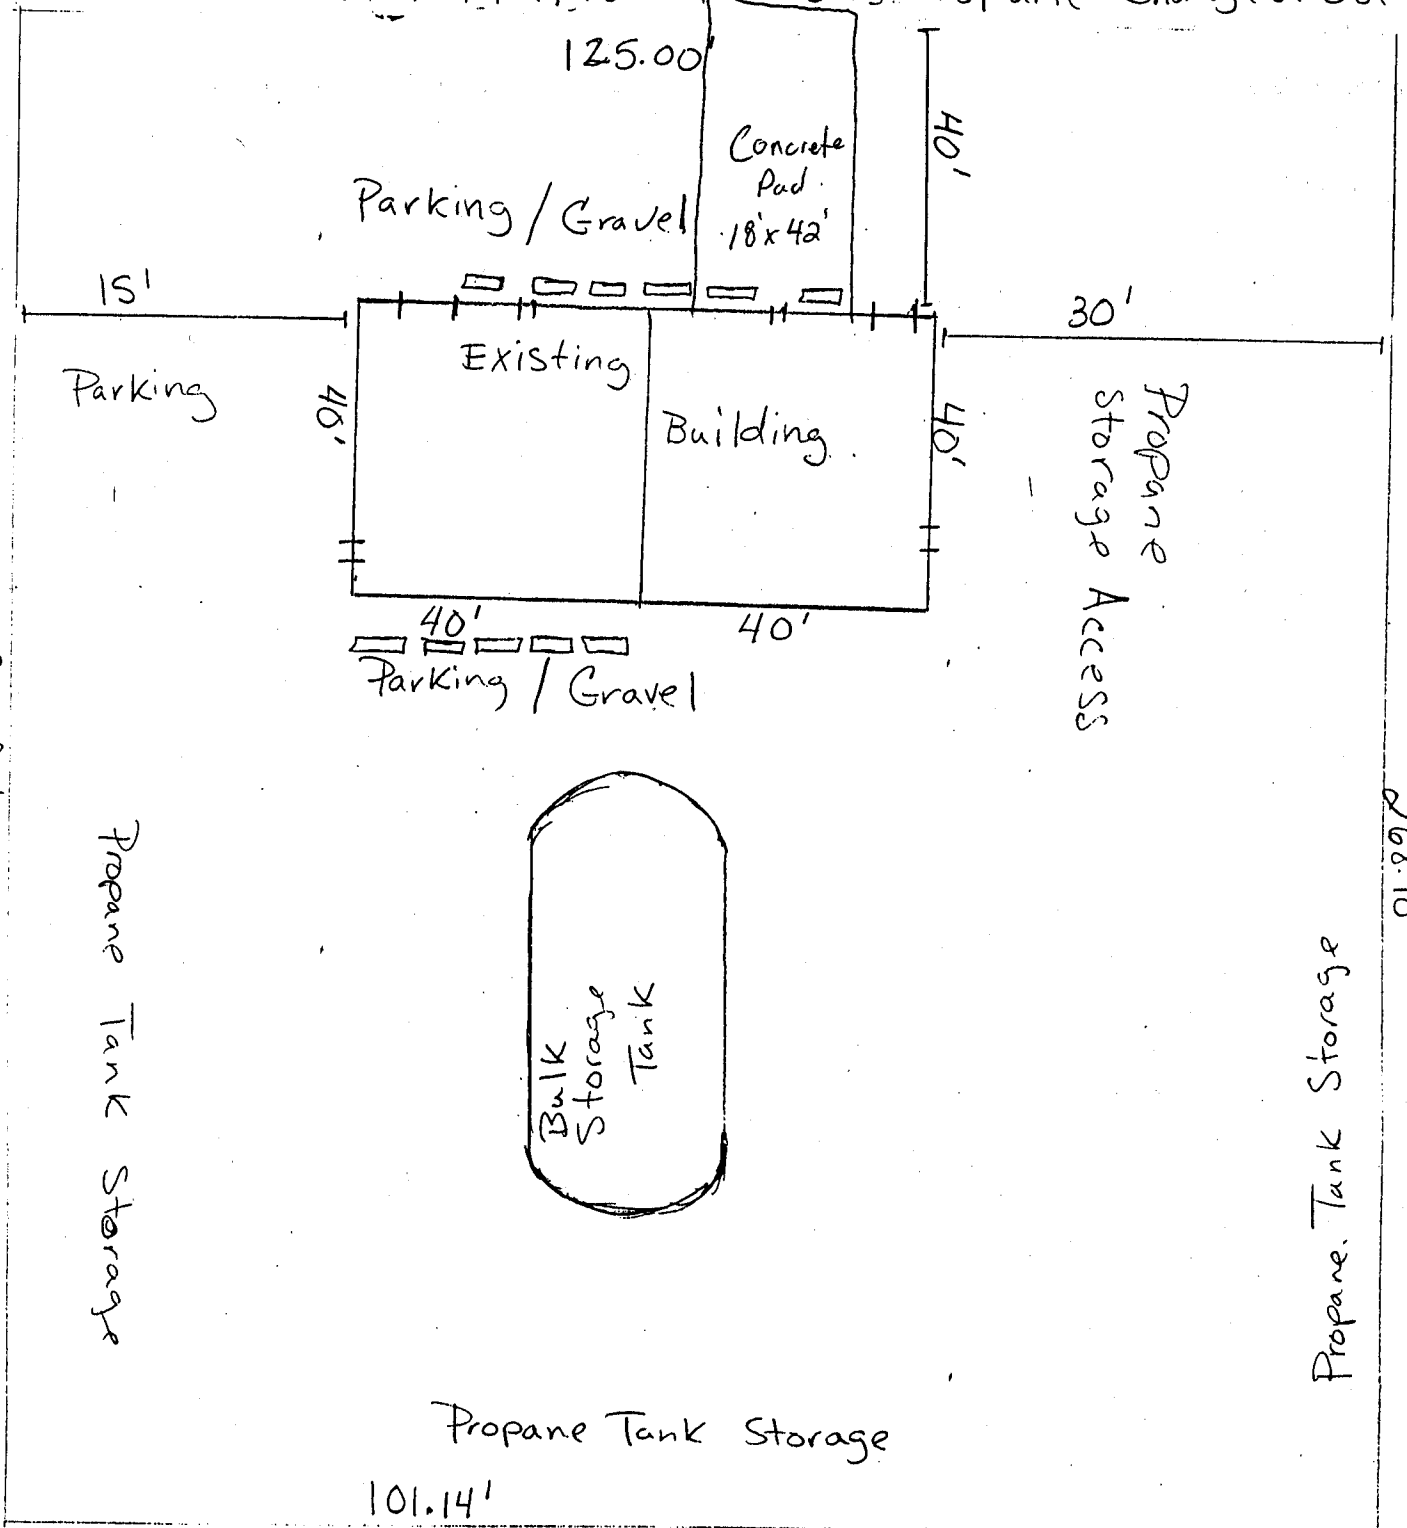 125.00'
40'
Concrete
Pad
18'x42'
Parking / Gravel
15'
30'
Parking
Existing
Building
40'
40'
Propane
Storage Access
40'
40'
Parking / Gravel
Propane Tank Storage
Bulk
Storage
Tank
Propane Tank Storage
Propane Tank Storage
101.14'